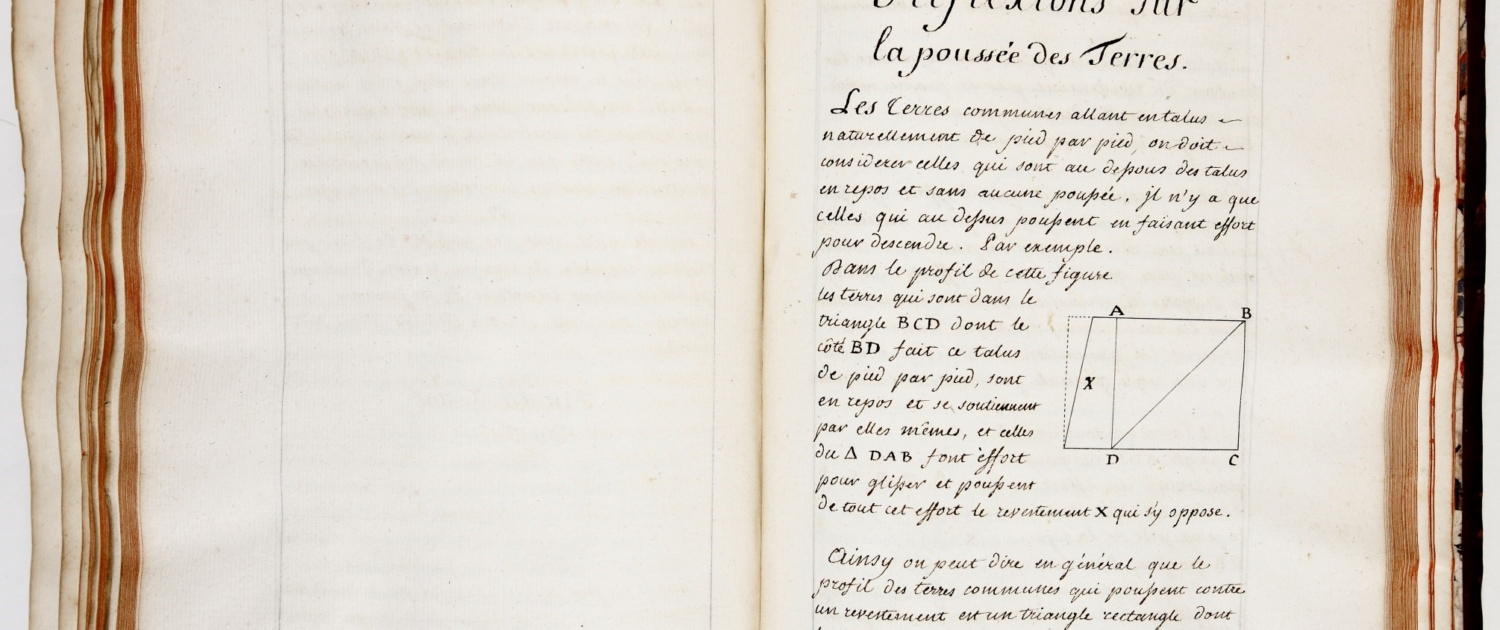 Reflexions sur
la poussée des Terres.
Les Terres communes allant en talus
naturellement de pied par pied, on doit
considerer celles qui sont au dessous des talus
en repos et sans aucune poussée, jl n'y a que
celles qui au dessus poussent en faisant effort
pour descendre. Par exemple.
Dans le profil de cette figure
les terres qui sont dans le
triangle BCD dont le
côté BD fait ce talus
de pied par pied, sont
en repos et se soutiennent
par elles mêmes, et celles
du Δ DAB font effort
pour glisser et poussent
de tout cet effort le revestement X qui s'y oppose.
A B
X
D C
Ainsy on peut dire en général que le
profil des terres communes qui poussent contre
un revestement est un triangle rectangle dont